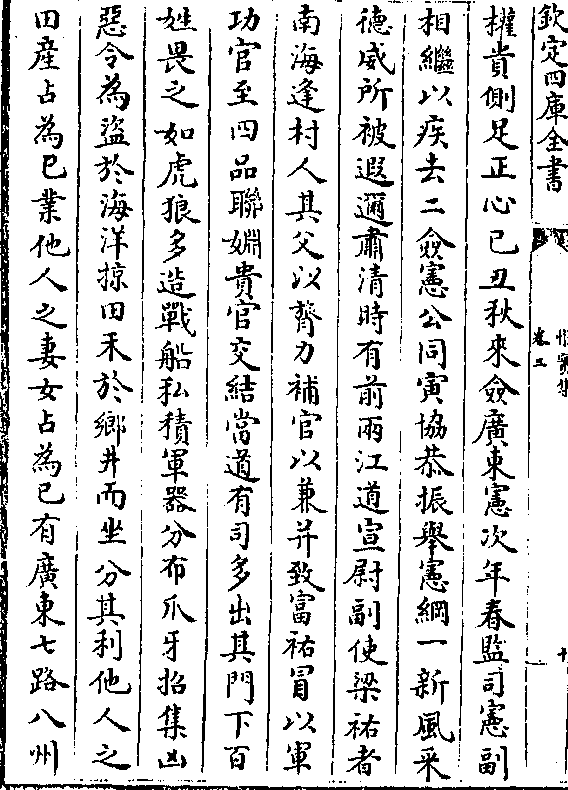 欽定四庫全書
卷三
權貴側足正心己丑秋來僉廣東憲次年春監司憲副
相繼以疾去二僉憲公同寅協恭振舉憲綱一新風采
德威所被遐邇肅清時有前兩江道宣尉副使梁祐者
南海逢村人其父以膂力補官以兼并致富祐冒以軍
功官至四品聯婣貴官交結當道有司多出其門下百
姓畏之如虎狼多造戰船私積軍器分布爪牙招集凶
惡令為盜於海洋掠田禾於鄉井而坐分其利他人之
田産占為已業他人之妻女占為已有廣東七路八州